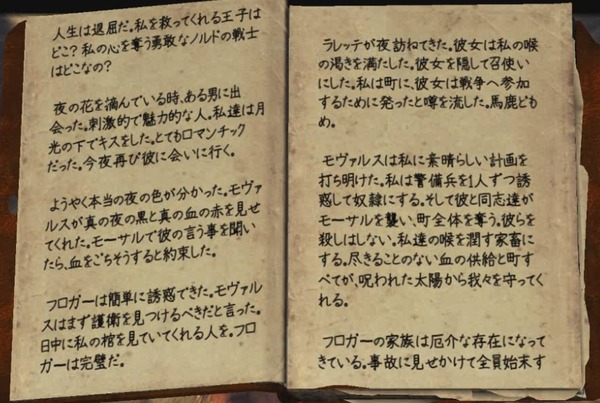 人生は退屈だ。私を救ってくれる王子は
どこ？私の心を奪う勇敢なノルドの戦士
はどこなの？
夜の花を摘んでいる時、ある男に出
会った。刺激的で魅力的な人。私達は月
光の下でキスをした。とてもロマンチック
だった。今夜再び彼に会いに行く。
ようやく本当の夜の色が分かった。モヴァ
ルスが真の夜の黒と真の血の赤を見せ
てくれた。モーサルで彼の言う事を聞い
たら、血をごちそうすると約束した。
フロガーは簡単に誘惑できた。モヴァル
スはまず護衛を見つけるべきだと言った。
日中に私の棺を見ていてくれる人を。フロ
ガーは完璧だ。
ラレッテが夜訪ねてきた。彼女は私の喉
の渇きを満たした。彼女を隠して召使い
にした。私は町に、彼女は戦争へ参加
するために発ったと噂を流した。馬鹿ども
め。
モヴァルスは私に素晴らしい計画を
打ち明けた。私は警備兵を1人ずつ誘
惑して奴隷にする。そして彼と同志達が
モーサルを襲い、町全体を奪う。彼らを
殺しはしない。私達の喉を潤す家畜に
する。尽きることのない血の供給と町す
べてが、呪われた太陽から我々を守ってく
れる。
フロガーの家族は厄介な存在になって
きている。事故に見せかけて全員始末す